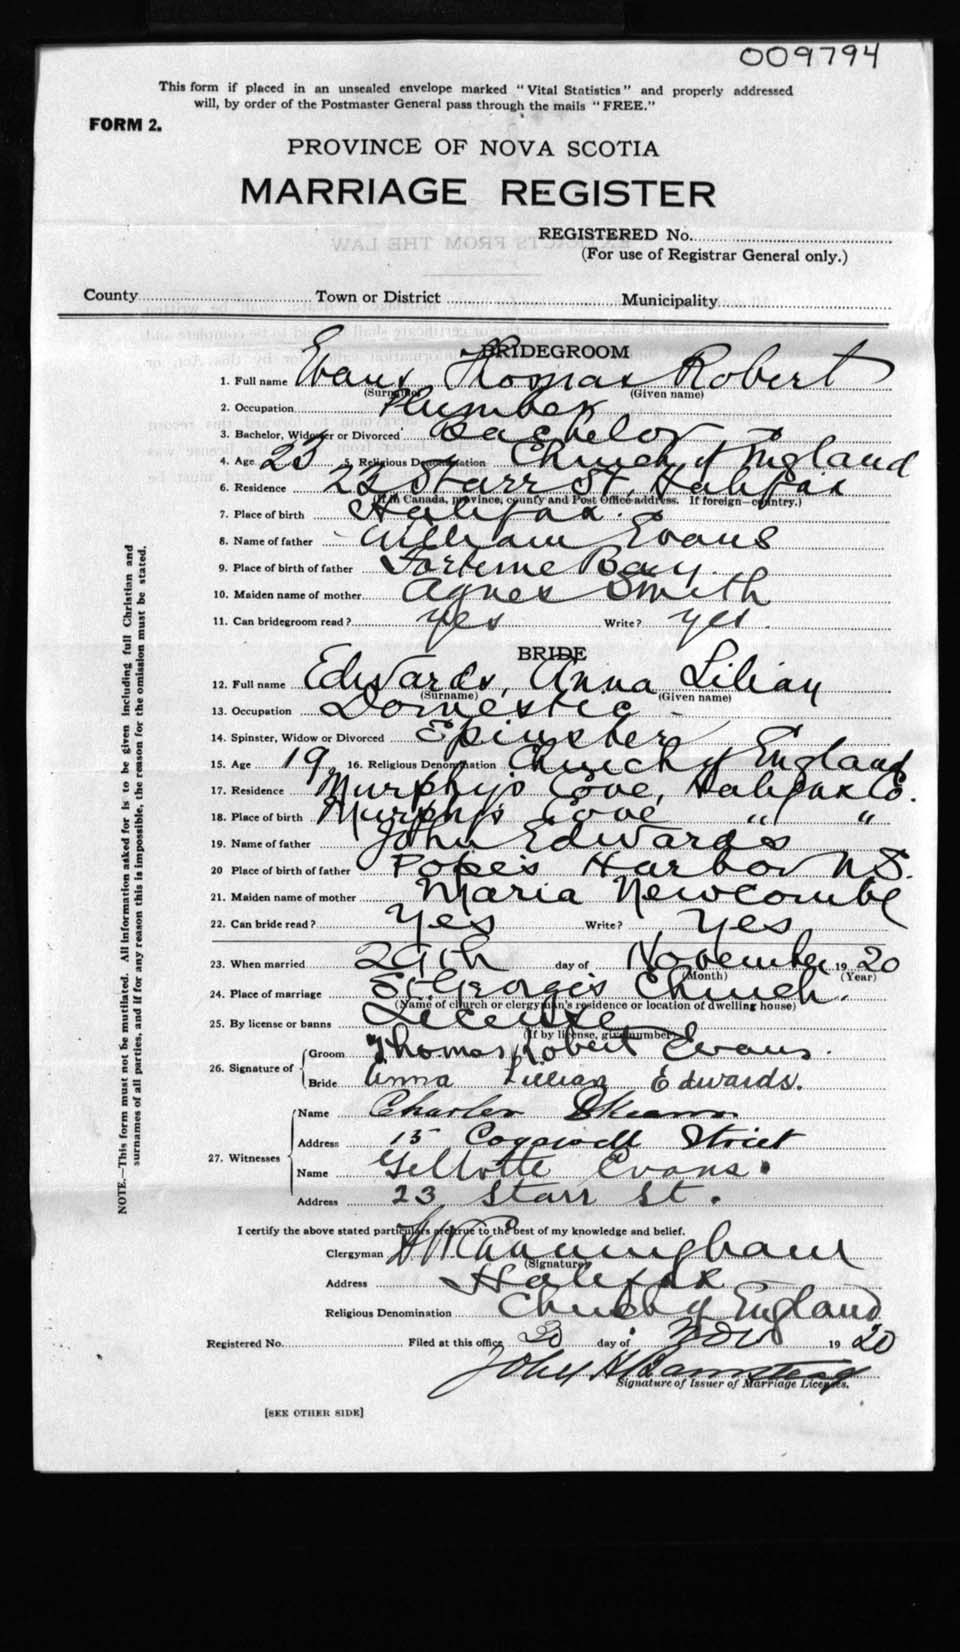 009794
This form if placed in an unsealed envelope marked "Vital Statistics" and properly addressed
will, by order of the Postmaster General pass through the mails "FREE."
FORM 2.
PROVINCE OF NOVA SCOTIA
MARRIAGE REGISTER
REGISTERED No.
(For use of Registrar General only.)
County Town or District Municipality
BRIDEGROOM
1. Full name Evans Thomas Robert
(Surname) (Given name)
2. Occupation Plumber
3. Bachelor, Widower or Divorced Bachelor
4. Age 23 5. Religious Denomination Church of England
6. Residence 23 Starr St, Halifax
(If in Canada, province, county and Post Office address. If foreign—country.)
7. Place of birth Halifax.
8. Name of father William Evans
9. Place of birth of father Fortune Bay.
10. Maiden name of mother Agnes Smith
11. Can bridegroom read? yes Write? yes.
BRIDE
12. Full name Edwards, Anna Lilian
(Surname) (Given name)
13. Occupation Domestic
14. Spinster, Widow or Divorced Spinster
15. Age 19 16. Religious Denomination Church of England
17. Residence Murphy's Cove, Halifax Co.
18. Place of birth Murphy's Cove " "
19. Name of father John Edwards
20 Place of birth of father Pope's Harbor N.S.
21. Maiden name of mother Maria Newcombe
22. Can bride read? Yes Write? Yes
23. When married 29th day of November 1920
(Month) (Year)
24. Place of marriage St. George's Church.
(Name of church or clergyman's residence or location of dwelling house)
25. By license or banns License
(If by license, give number)
26. Signature of Groom Thomas Robert Evans.
Bride Anna Lillian Edwards.
27. Witnesses
Name Charles
Address 15 Cogswell Street
Name Evans.
Address 23 Starr St.
I certify the above stated particulars are true to the best of my knowledge and belief.
Clergyman Cunningham
(Signature)
Address Halifax
Religious Denomination Church of England
Registered No. Filed at this office 30 day of Nov 1920
John H
Signature of Issuer of Marriage Licenses.
[SEE OTHER SIDE]
NOTE.—This form must not be mutilated. All information asked for is to be given including full Christian and
surnames of all parties, and if for any reason this is impossible, the reason for the omission must be stated.